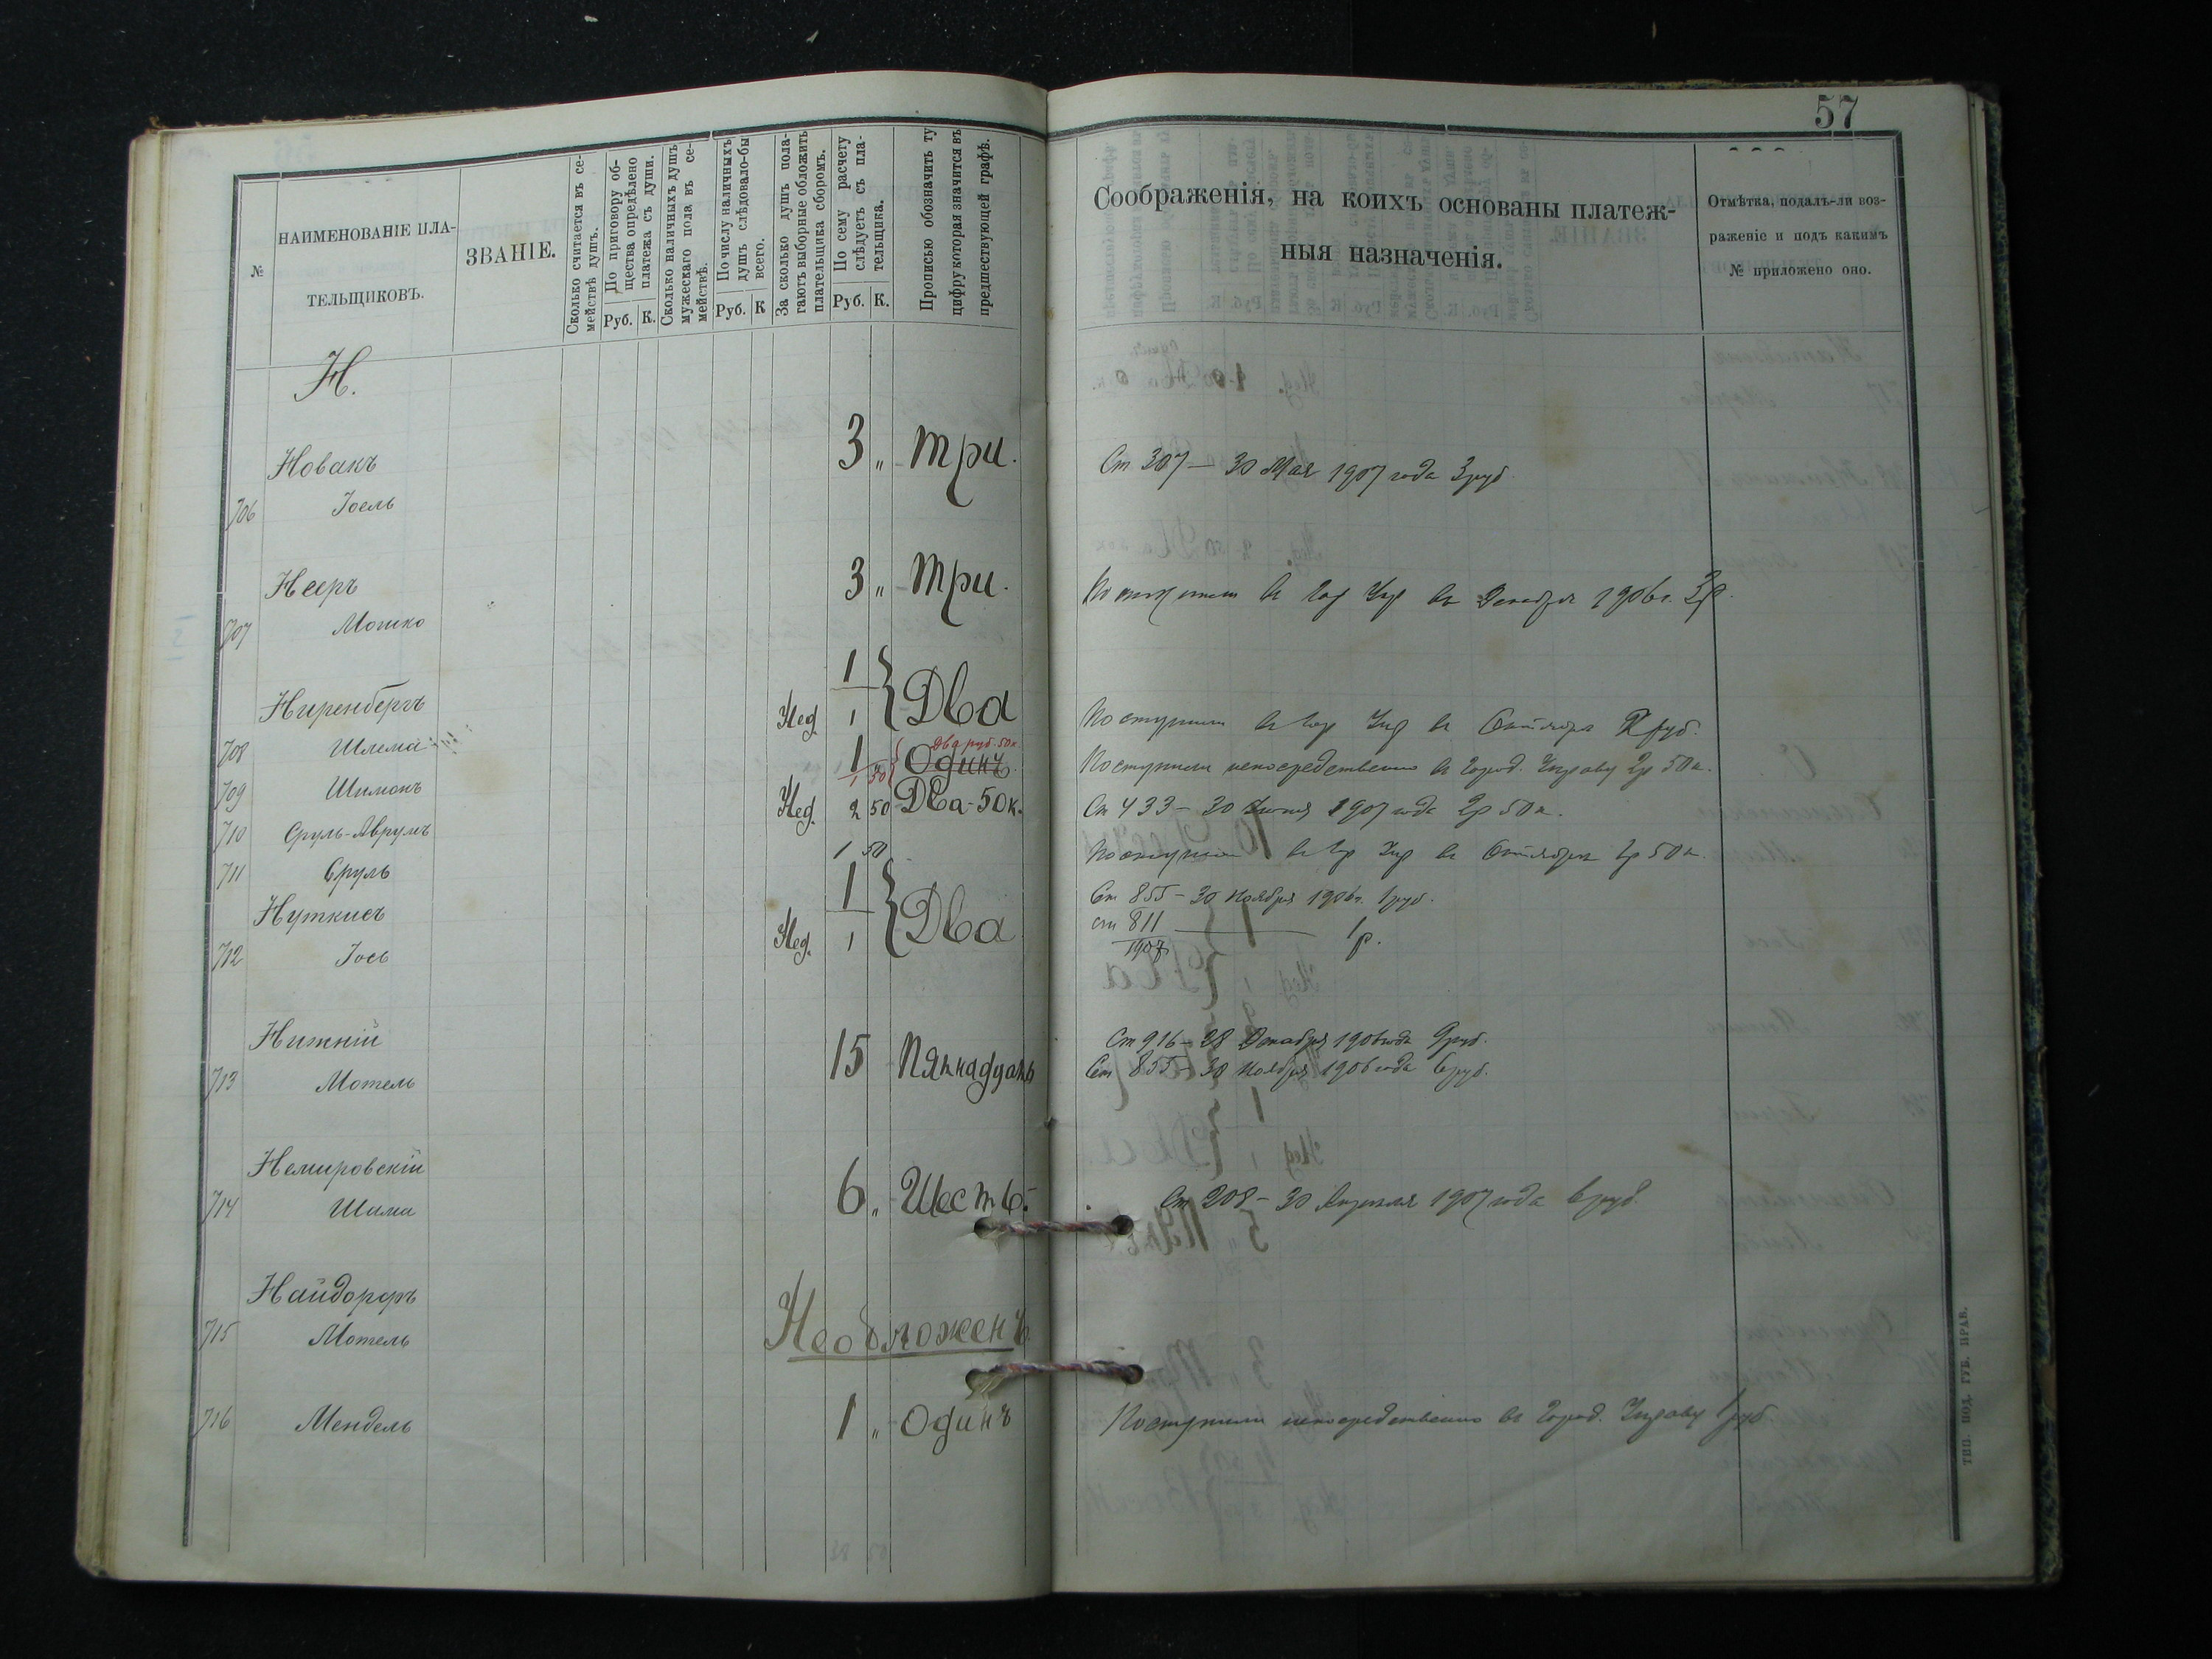 57
№
НАИМЕНОВАНІЕ ПЛА-
ТЕЛЬЩИКОВЪ.
ЗВАНІЕ.
Сколько считается въ се-
мействѣ душъ.
По приговору об-
щества опредѣлено
платежа съ души.
Руб. К.
Сколько наличныхъ душъ
мужескаго пола въ се-
мействѣ.
По числу наличныхъ
душъ слѣдовало-бы
всего.
Руб. К
За сколько душъ пола-
гаютъ выборные обложить
плательщика сборомъ.
По сему расчету
слѣдуетъ съ пла-
тельщика.
Руб. К.
Прописью обозначить ту
цифру которая значится въ
предшествующей графѣ.
Соображенія, на коихъ основаны платеж-
ныя назначенія.
Отмѣтка, подалъ-ли воз-
раженіе и подъ какимъ
№ приложено оно.
Н.
Новакъ 3 „ Три.
Ст 307 — 30 Мая 1907 года 3 руб
706 Іоель
Нееръ 3 „ Три.
Поступили въ Гор Упр въ Декабрѣ 1906 г. 3 р.
707 Мошко
Ниренбергъ 1
Нед. 1 Два
708 Шлема
Поступили въ Гор Упр въ Октябрѣ руб.
два руб. 50 к.
709 Шимонъ 1 Одинъ
1 50
Поступили непосредственно въ Город. Управу 2 р 50 к.
710 Сруль-Аврумъ Нед. 2 50 Два-50 к.
Ст 433 — 30 Іюня 1907 года 2 р 50 к.
711 Сруль 1 50
Поступили въ Гор Упр въ Октябрѣ 1 р 50 к.
Нуткисъ 1
Ст 855 — 30 Ноября 1906 г. 1 руб.
712 Іось Нед. 1 Два
ст 811 — 1 р.
1907
Нижній 15 Пятнадцать
Ст 916 — 28 Декабря 1906 года 9 руб.
713 Мотель
Ст 855 — 30 Ноября 1906 года 6 руб.
Немировскій 6 „ Шесть.
714 Шама
Ст 208 — 30 Апреля 1907 года 6 руб.
Найдорфъ
715 Мотель Необложенъ
716 Мендель 1 „ Одинъ
Поступили непосредственно въ Город. Управу 1 руб
ТИП. ПОД. ГУБ. ПРАВ.